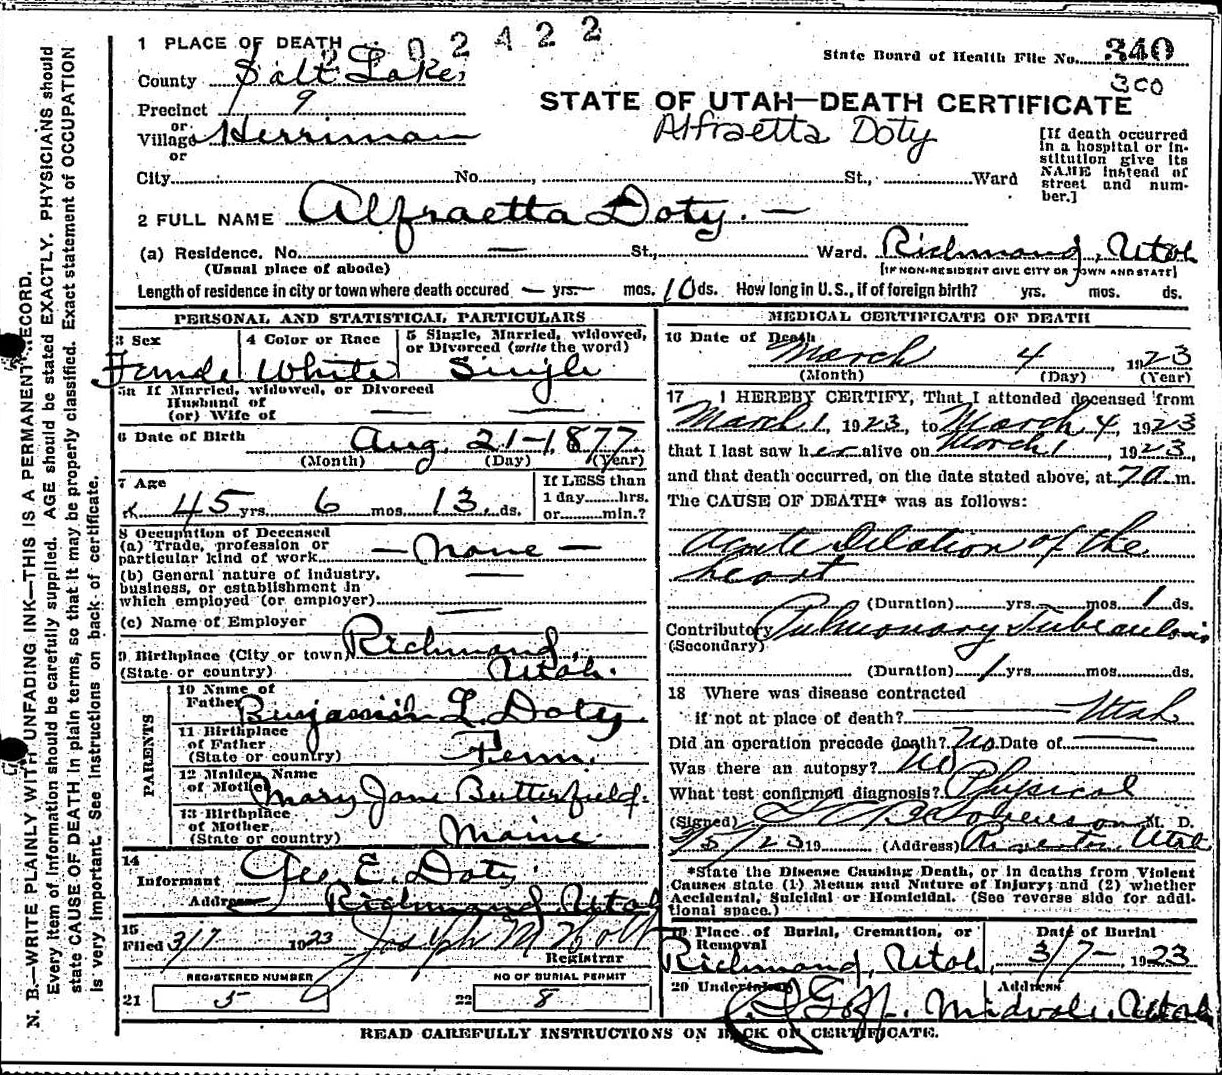 2 0 2 4 2 2
1 PLACE OF DEATH
State Board of Health File No. 340
300
County Salt Lake
Precinct 9
or
Village Herriman
or
City No. St., Ward
STATE OF UTAH—DEATH CERTIFICATE
Alfraetta Doty
[If death occurred
in a hospital or in-
stitution give its
NAME instead of
street and num-
ber.]
2 FULL NAME Alfraetta Doty. —
(a) Residence. No. — St., Ward. Richmond, Utah
(Usual place of abode) [IF NON-RESIDENT GIVE CITY OR TOWN AND STATE]
Length of residence in city or town where death occured — yrs. mos. 10 ds. How long in U.S., if of foreign birth? yrs. mos. ds.
PERSONAL AND STATISTICAL PARTICULARS
3 Sex
Female
4 Color or Race
White
5 Single, Married, widowed,
or Divorced (write the word)
Single
5a If Married, widowed, or Divorced
Husband of
(or) Wife of — —
6 Date of Birth Aug. 21-1,877
(Month) (Day) (Year)
7 Age
45 yrs. 6 mos. 13 ds.
If LESS than
1 day hrs.
or min.?
8 Occupation of Deceased
(a) Trade, profession or
particular kind of work — none —
(b) General nature of industry, —
business, or establishment in
which employed (or employer)
(c) Name of Employer —
9 Birthplace (City or town) Richmond,
(State or country) Utah.
PARENTS
10 Name of
Father Benjamin L. Doty.
11 Birthplace
of Father
(State or country) Penn.
12 Maiden Name
of Mother Mary Jane Butterfield.
13 Birthplace
of Mother,
(State or country) Maine
14
Informant Geo. E. Doty
Address Richmond, Utah
15
Filed 3/7 1923 Joseph M Holt
Registrar
REGISTERED NUMBER NO OF BURIAL PERMIT
21 5 22 8
MEDICAL CERTIFICATE OF DEATH
16 Date of Death
March 4 1923
(Month) (Day) (Year)
17 I HEREBY CERTIFY, That I attended deceased from
March 1, 1923, to March 4, 1923
that I last saw her alive on March 1, 1923,
and that death occurred, on the date stated above, at 7 a m.
The CAUSE OF DEATH* was as follows:
Acute Dilation of the
heart
(Duration) yrs. mos. 1 ds.
Contributory Pulmonary Tuberculosis
(Secondary)
(Duration) 1 yrs. mos. ds.
18 Where was disease contracted
if not at place of death? Utah
Did an operation precede death? No. Date of —
Was there an autopsy? No
What test confirmed diagnosis? Physical
(Signed) M. D.
3/5/23 19 (Address) Riverton, Utah
*State the Disease Causing Death, or in deaths from Violent
Causes state (1) Means and Nature of Injury; and (2) whether
Accidental, Suicidal or Homicidal. (See reverse side for addi-
tional space.)
19 Place of Burial, Cremation, or
Removal
Richmond, Utah,
Date of Burial
3/7- 1923
20 Undertaker Address
Goff. Midvale, Utah
READ CAREFULLY INSTRUCTIONS ON BACK OF CERTIFICATE.
N. B.—WRITE PLAINLY WITH UNFADING INK—THIS IS A PERMANENT RECORD.
Every item of information should be carefully supplied. AGE should be stated EXACTLY. PHYSICIANS should
state CAUSE OF DEATH in plain terms, so that it may be properly classified. Exact statement of OCCUPATION
is very important. See instructions on back of certificate.